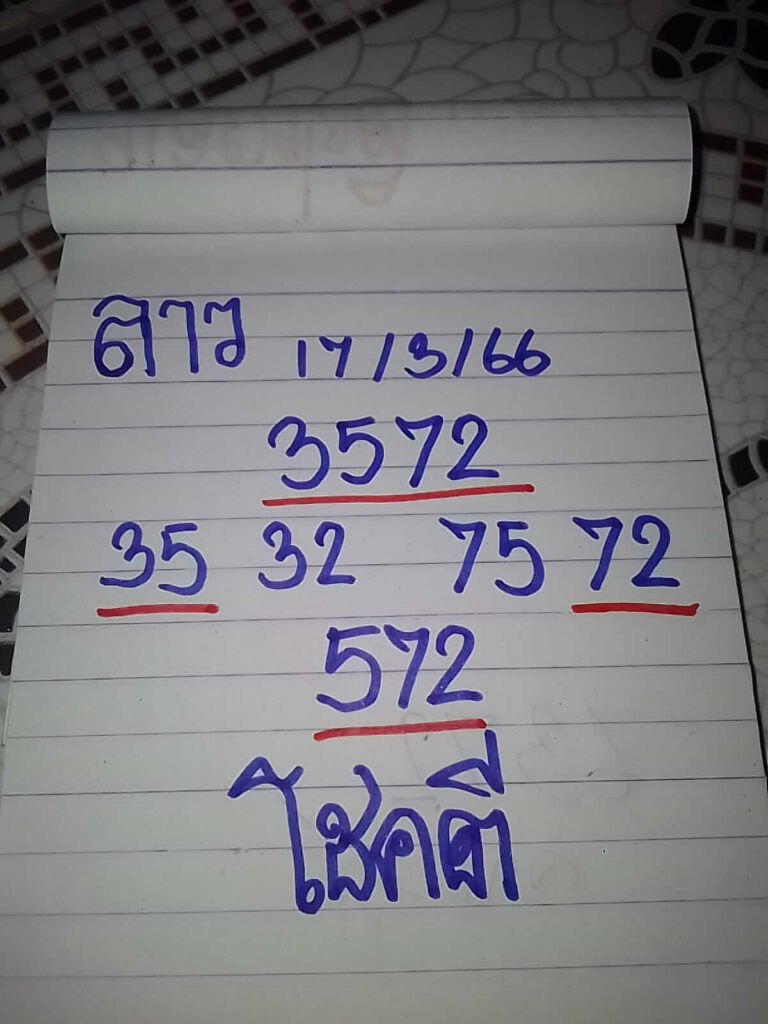 ลาว 17/3/66
3572
35 32 75 72
572
โชคดี